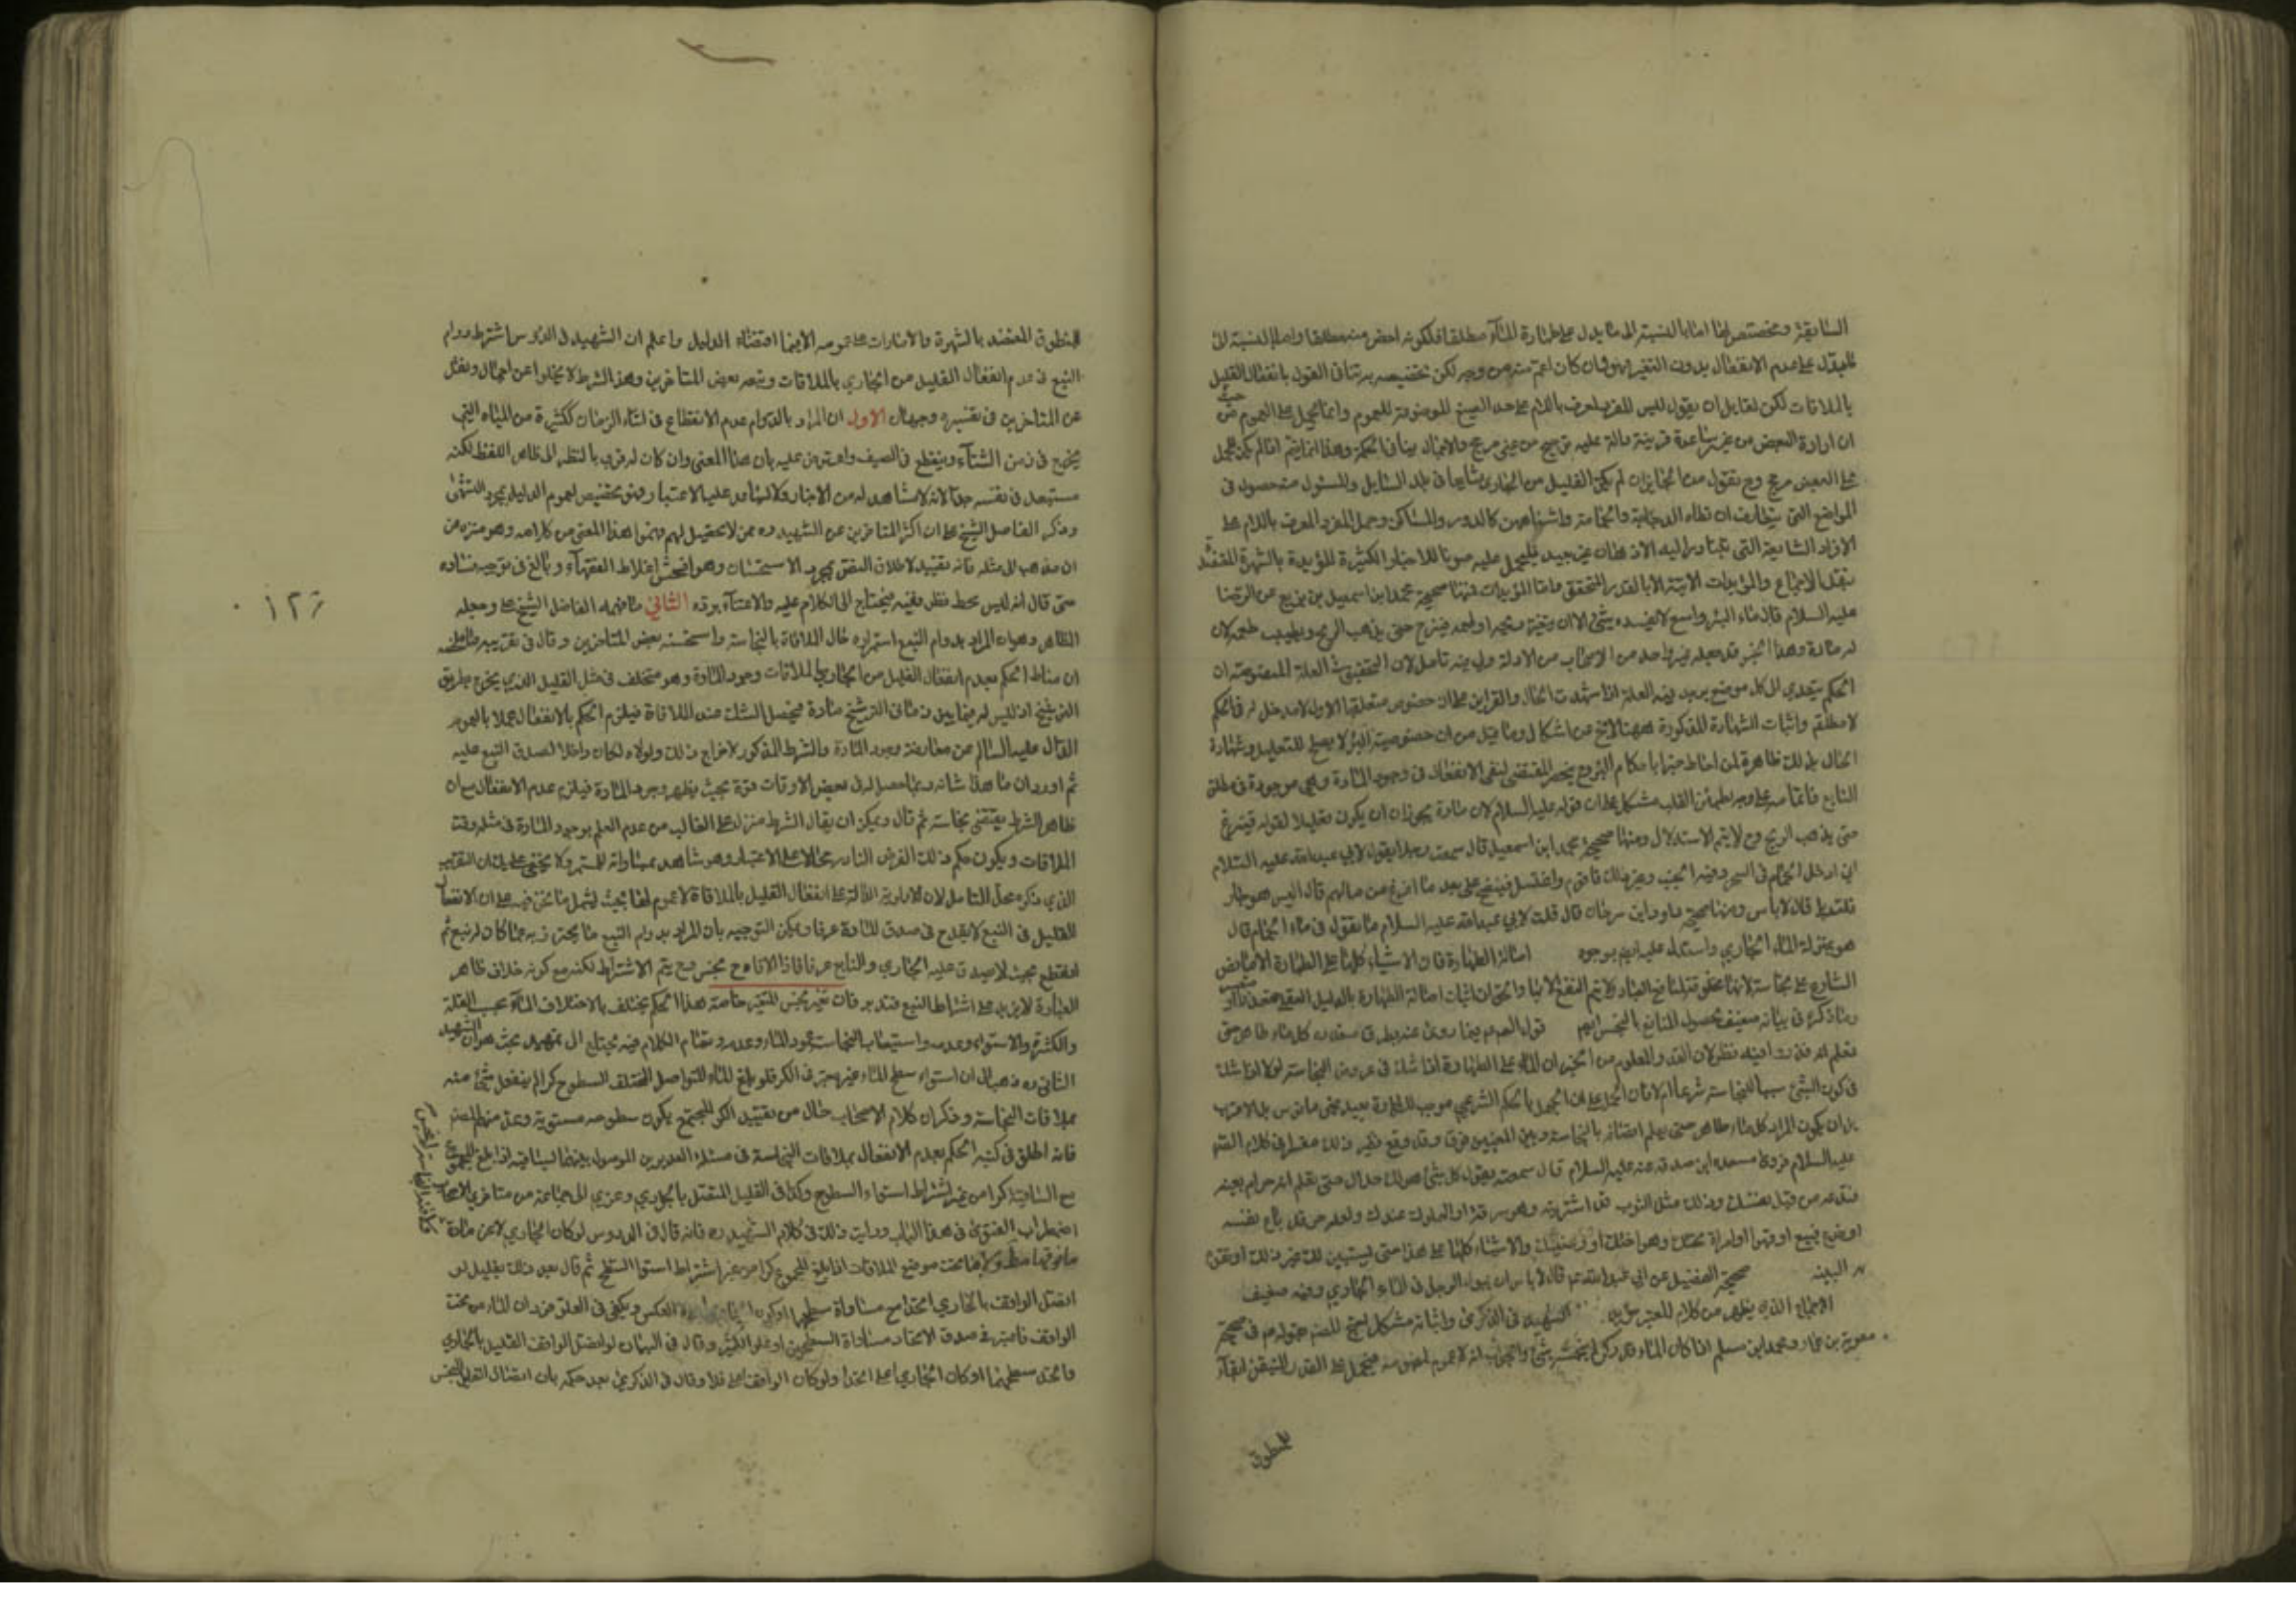 السابقة ومخصص لها اما بالنسبة الى ما يدل على طهارة الماء مطلقا فلكونه اخص منه مطلقا واما بالنسبة الى
ما يدل على عدم الانفعال بدون التغير فهو وان كان اعم منه من وجه لكن تخصيصه به ينافى القول بانفعال القليل
بالملاقات لكن لقايل ان يقول ليس المفرد المعرف باللام على حد الصيغ الموضوعة للعموم وانما يحمل على العموم من حيث
ان ارادة البعض من غير مساعدة قرينة دالة عليه ترجيح من غير مرجح والاجمال ينافى الحكمة وهذا انما يتم اذا لم يكن لحمل
على البعض مرجح وح نقول من الجايز ان لم يكن القليل من الجارى شايعا فى بلد السايل والمسئول منه حصول فى
المواضع التى يتعارف ان تطاه الدجاجة والحمامة واشباههن كالدور والمساكن وحمل المفرد المعرف باللام على
الافراد الشايعة التى يتبادر اليه الاذهان غير بعيد فليحمل عليه صونا للاخبار الكثيرة المؤيدة بالشهرة المعتضدة
بنقل الاجماع والمؤيدات الاتية الا بالقدر المتحقق واما المؤيدات فمنها صحيحة محمد ابن اسمعيل بن بزيع عن الرضا
عليه السلام قال ماء البئر واسع لا يفسده شئ الا ان يتغير ريحه او طعمه فينزح حتى يذهب الريح ويطيب طعمه لان
له مادة وهذا الخبر قد جعله غير واحد من الاصحاب من الادلة ولى فيه تامل لان التحقيق ان العلة المنصوصة ان
الحكم يتعدى الى كل موضع يوجد فيه العلة اذا شهدت الحال والقراين على ان خصوص متعلقها الاول لا مدخل له فى الحكم
لا مطلقا واثبات الشهادة المذكورة ههنا لا يخ عن اشكال وما قيل من ان خصوصية البئر لا يصلح للتعليل وشهادة
الحال بذلك ظاهرة لمن احاط خبرا باحكام البئر وح ينحصر المقتضى لنفى الانفعال فى وجود المادة وهى موجودة فى مطلق
النابع فاتمامه على وجه يطمئن القلب مشكل على ان قوله عليه السلام لان مادة يجوز ان يكون تعليلا لقوله فينزح
حتى يذهب الريح وح لا يتم الاستدلال ومنها صحيحة محمد ابن اسمعيل قال سمعت رجلا يقول لابى عبد الله عليه السلام
انى ادخل الحمام فى السحر وفيه الجنب وغير ذلك فاقوم واغتسل فينتضح على بعد ما افرغ من مائهم قال اليس هو جار
قلت بلى قال لا باس ومنها صحيحة داود ابن سرحان قال قلت لابى عبد الله عليه السلام ما تقول فى ماء الحمام قال
هو بمنزلة الماء الجارى واستدل عليه ايضا بوجوه اصالة الطهارة فان الاشياء كلها على الطهارة الا ما نص
الشارع على نجاسته لانها مخلوقة لمنافع العباد ولا يتم النفع الا بها والحق ان اثبات اصالة الطهارة بالدليل العقلى
وما ذكر فى بيانه ضعيف لحصول المنافع بالنجس ايضا قوله العموم فيما روى عنه بطرق متعددة كل ماء طاهر حتى
تعلم انه قذر وفيه نظر لان القدر المعلوم من الخبر ان الماء على الطهارة اذا شك فى عروض النجاسة له لا اذا شك
فى كون الشئ سببا للنجاسة شرعا ام لا فان الحمل على ان الجهل بالحكم الشرعى موجب للطهارة بعيد محض مانوس بل الاقرب
بل ان يكون المراد كل ماء طاهر حتى يعلم اتصافه بالنجاسة وبين المعنيين فرق وقد وقع نظير ذلك مفسرا فى كلام الصادق
عليه السلام فروى مسعدة ابن صدقة عنه عليه السلام قال سمعته يقول كل شئ هو لك حلال حتى تعلم انه حرام بعينه
فتدعه من قبل نفسك وذلك مثل الثوب قد اشتريته وهو سرقة او المملوك عندك ولعله حر قد باع نفسه
او خدع فبيع او قهر او امراة تحتك وهى اختك او رضيعتك والاشياء كلها على هذا حتى يستبين لك غير ذلك او تقوم
به البينة صحيحة الفضيل عن ابى عبد الله ع قال لا باس ان يبول الرجل فى الماء الجارى وفيه ضعيف
الاجماع الذى يظهر من كلام المعتبر الشهيد فى الذكرى واثباته مشكل احتج المصر بقوله ع فى صحيحة
معوية بن عمار ومحمد ابن مسلم اذا كان الماء قدر كر لم ينجسه شئ والجواب انه لا عموم لمفهومه فيحمل على القدر المتيقن ابقاء
للمنطوق
للمنطوق المعتضد بالشهرة والامارات على عمومه الا فيما اقتضاه الدليل واعلم ان الشهيد فى الدروس اشترط دوام
النبع فى عدم انفعال القليل من الجارى بالملاقات وتبعه بعض المتاخرين وهذا الشرط لا يخلوا عن اجمال ونقل
عن المتاخرين فى تفسيره وجهان الاول ان المراد بالدوام عدم الانقطاع فى اثناء الزمان ككثيرة من المياه التى
يخرج فى زمن الشتاء وينقطع فى الصيف واعترض عليه بان هذا المعنى وان كان له قرب بالنظر الى ظاهر اللفظ لكنه
مستبعد فى نفسه جدا لانه لا شاهد له من الاخبار ولا يساعد عليه الاعتبار وهو تخصيص لعموم الدليل بمجرد التشهى
وذكر الفاضل الشيخ على ان اكثر المتاخرين عن الشهيد ره ممن لا تحصيل لهم فهموا هذا المعنى من كلامه وهو منزه عن
ان يذهب الى مثله فانه تقييد لاطلاق النص بمجرد الاستحسان وهو افحش اغلاط الفقهاء وبالغ فى توجيه فساده
حتى قال انه ليس محط نظر فقيه فيحتاج الى الكلام عليه والاعتناء برده الثانى ما فهمه الفاضل الشيخ على وجعله
الظاهر وهو ان المراد بدوام النبع استمراره حال الملاقاة بالنجاسة واستحسنه بعض المتاخرين وقال فى تقريبه ما ملخصه
ان مناط الحكم بعدم انفعال القليل من الجارى بالملاقات وجود المادة وهو متخلف فى مثل القليل الذى يخرج بطريق
الترشيح اذ ليس له فيما بين زمانى الترشيح مادة فيحصل الشك عند الملاقاة فيلزم الحكم بالانفعال عملا بالعموم
الدال عليه السالم عن معارضة وجود المادة والشرط المذكور لاخراج ذلك ولولاه لكان داخلا لصدق النبع عليه
ثم اورد ان ما هذا شانه ربما حصل له فى بعض الاوقات قوة بحيث يظهر وجود المادة فيلزم عدم الانفعال مع ان
ظاهر الشرط يقتضى نجاسته ثم قال ويمكن ان يقال الشرط منزل على الغالب من عدم العلم بوجود المادة فى مثله وقت
الملاقات ويكون حكم ذلك الفرض النادر محالا على الاعتبار وهو شاهد بمساواته للمستمر ولا يخفى عليك ان التقريب
الذى ذكره محل التامل لان الاولوية الدالة على انفعال القليل بالملاقاة لا عموم لها بحيث يشمل ما نحن فيه على ان الانفصال
القليل فى النبع لا يقدح فى صدق المادة عرفا ويمكن التوجيه بان المراد بدوام النبع ما يحترز به عما كان له نبع ثم
انقطع بحيث لا يصدق عليه الجارى والنابع عرفا فاذا لاقاه ح نجس وح يتم الاشتراط لكنه مع كونه خلاف ظاهر
العبارة لا يزيد على اشتراط النبع فتدبر فان تغير نجس المتغير خاصة هذا الحكم يختلف بالاختلاف الماء بحسب القلة
والكثرة والاستواء وعدمه واستيعاب النجاسة عمود الماء وعدمه وتمام الكلام فيه يحتاج الى تمهيد بحث هو ان الشهيد
الثانى ره ذهب الى ان استواء سطح الماء غير معتبر فى الكر فلو بلغ الماء المتواصل المختلف السطوح كرا لم ينفعل شئ منه
بملاقات النجاسة وذكر ان كلام الاصحاب خال من تقييد الكر المجتمع بكون سطوحه مستوية وعد منهم المصر
فانه اطلق فى كتبه الحكم بعدم الانفعال بملاقات النجاسة فى مسئلة الغديرين الموصول بينهما بساقية اذا بلغ المجموع
مع الساقية كرا من غير اشتراط استواء السطوح وكذا فى القليل المتصل بالجارى وعزى الى جماعة من متاخرى الاصحاب
اضطراب الفتوى فى هذا الباب ورايت ذلك فى كلام الشهيد ره فانه قال فى الدروس لو كان الجارى لا عن مادة
ما فوقها مطلقا ولا ما تحت موضع الملاقات اذا بلغ المجموع كرا من غير اشتراط استواء السطح ثم قال بعد ذلك بقليل لو
اتصل الواقف بالجارى اتحدا مع مساواة سطحهما او كون العكس ويكفى فى العلو فوران الماء من تحت
الواقف فاعتبر فى صدق الاتحاد مساواة السطحين او علو الكثير وقال فى البيان لو اتصل الواقف القليل بالجارى
واتحد سطحهما او كان الجارى اعلى اتحدا ولو كان الواقف اعلى فلا وقال فى الذكرى بعد حكمه بان اتصال القليل النجس
١٢٦